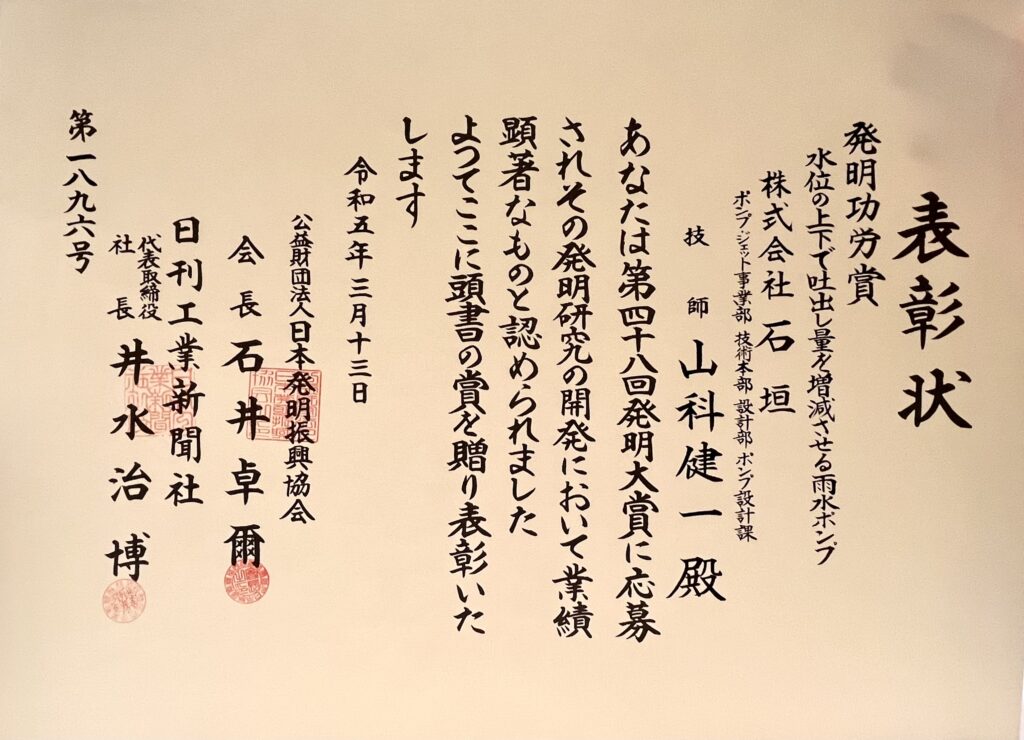 表彰状
発明功労賞
水位の上下で吐出し量を増減させる雨水ポンプ
株式会社 石垣
ポンプ・ジェット事業部 技術本部 設計部 ポンプ設計課
技師 山科健一殿
あなたは第四十八回発明大賞に応募
されその発明研究の開発において業績
顕著なものと認められました
よつてここに頭書の賞を贈り表彰いた
します
令和五年三月十三日
公益財団法人日本発明振興協会
会長 石井卓爾
日刊工業新聞社
代表取締役
社長 井水治博
第一八九六号